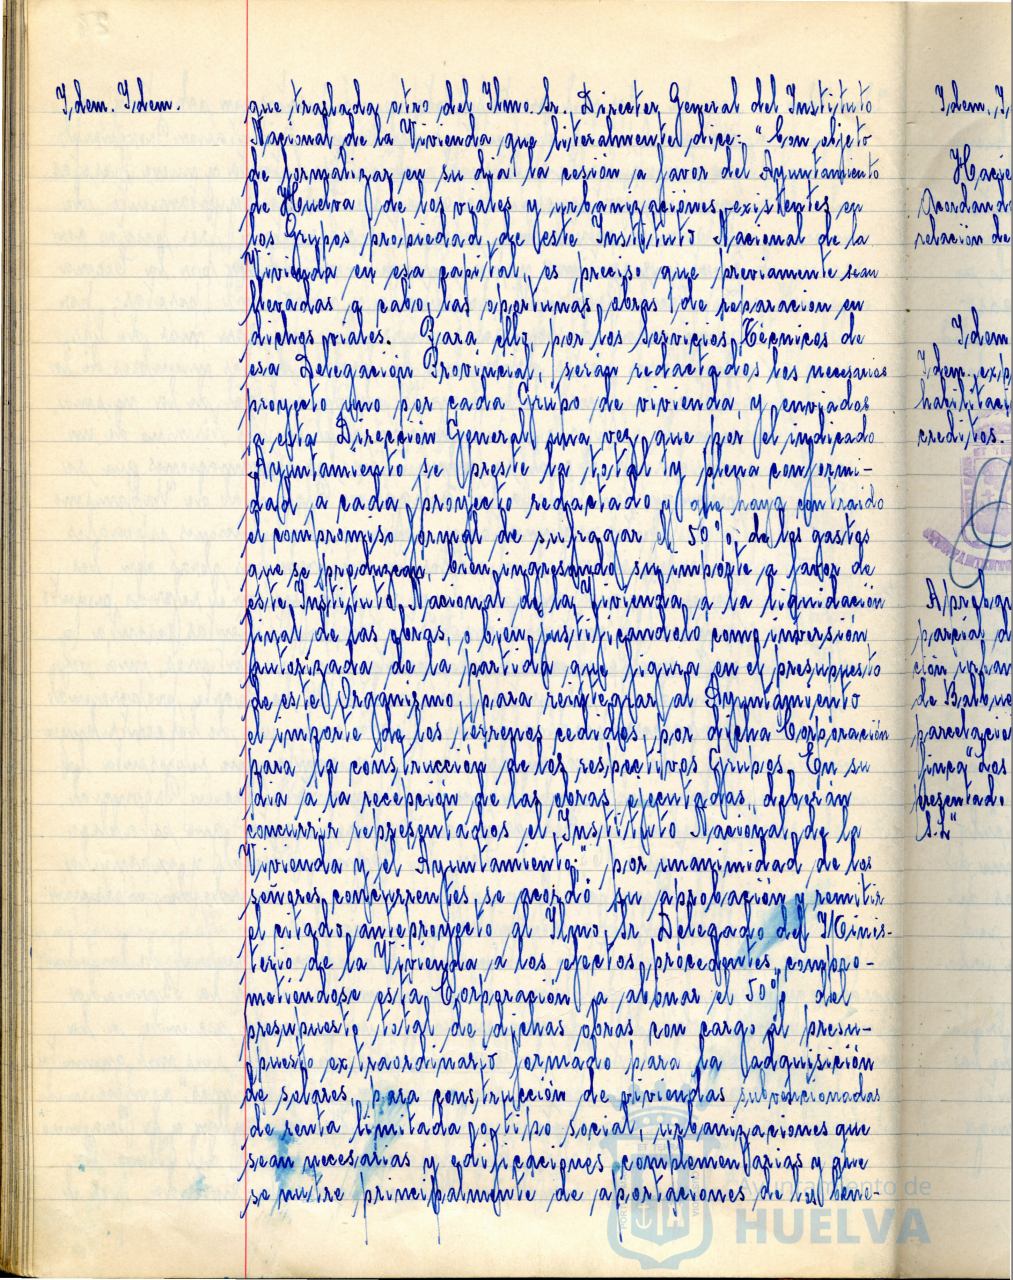 Idem. Idem.
que traslada otro del Ilmo. Sr. Director General del Instituto
Nacional de la Vivienda, que literalmente dice: "Con objeto
de formalizar en su día la cesión a favor del Ayuntamiento
de Huelva de los viales y urbanizaciones existentes en
los Grupos propiedad de este Instituto Nacional de la
Vivienda en esa capital, es preciso que previamente sean
llevadas a cabo las oportunas obras de reparación en
dichos viales. Para ello, por los Servicios Técnicos de
esa Delegación Provincial, serán redactados los necesarios
proyecto uno por cada Grupo de vivienda, y enviados
a esta Dirección General una vez que por el indicado
Ayuntamiento se preste la total y plena conformi-
dad a cada proyecto redactado y que haya contraido
el compromiso formal de sufragar el 50% de los gastos
que se produzcan, bien ingresando su importe a favor de
este Instituto Nacional de la Vivienda, a la liquidación
final de las obras, o bien justificandolo como inversión
autorizada de la partida que figura en el presupuesto
de este Organismo, para reintegrar al Ayuntamiento
el importe de los terrenos cedidos por dicha Corporación
para la construcción de los respectivos Grupos. En su
día a la recepción de las obras ejecutadas, deberán
concurrir representados el Instituto Nacional de la
Vivienda y el Ayuntamiento," por unanimidad de los
señores concurrentes, se acordó su aprobación y remitir
el citado anteproyecto al Ilmo. Sr. Delegado del Minis-
terio de la Vivienda a los efectos procedentes, compro-
metiéndose esta Corporación a abonar el 50% del
presupuesto total de dichas obras con cargo al presu-
puesto extraordinario formado para la adquisición
de solares, para construcción de viviendas subvencionadas
de renta limitada y tipo social, urbanizaciones que
sean necesarias y edificaciones complementarias y que
se nutre principalmente de aportaciones de los bene-
Idem. I
Hacie
Acordand
relación de
Idem
Idem. exp
habilitaci
creditos.
parcial d
ción urban
parcelació
finca "Los
presentado
S.L"
Ayuntamiento de
HUELVA